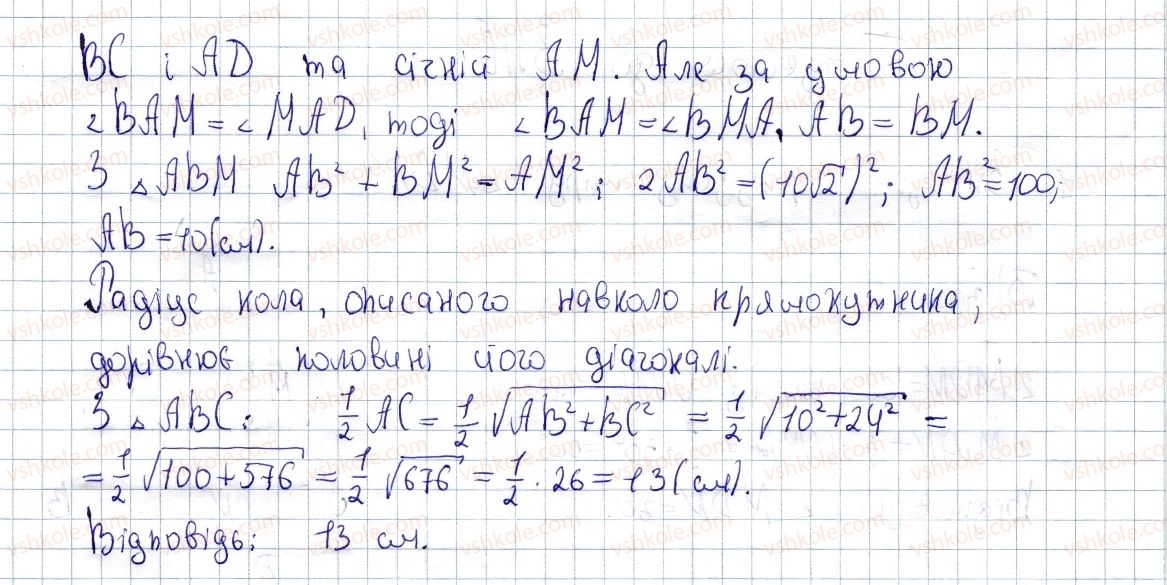 BC і AD та січній AM. Але за умовою
∠BAM = ∠MAD, тоді ∠BAM = ∠BMA, AB = BM.
З △ABM AB² + BM² = AM²; 2AB² = (10√2)²; AB² = 100;
AB = 10 (см).
Радіус кола, описаного навколо прямокутника,
дорівнює половині його діагоналі.
З △ABC: 1/2 AC = 1/2 √(AB² + BC²) = 1/2 √(10² + 24²) =
= 1/2 √(100 + 576) = 1/2 √676 = 1/2 · 26 = 13 (см).
Відповідь: 13 см.